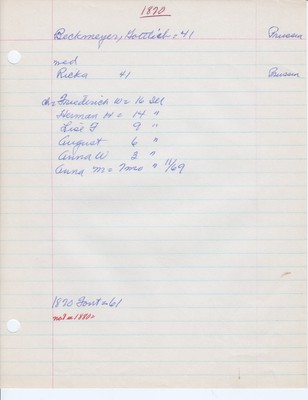 1870
Beckmeyer, Gottlieb = 41 Prussia
med
Ricka 41 Prussia
ch = Friederich W = 16 Ill
Herman H = 14 "
Lise F 9 "
August 6 "
Anna W 3 "
Anna M = 7mo " 11/69
1870 Font = 61
not in 1880